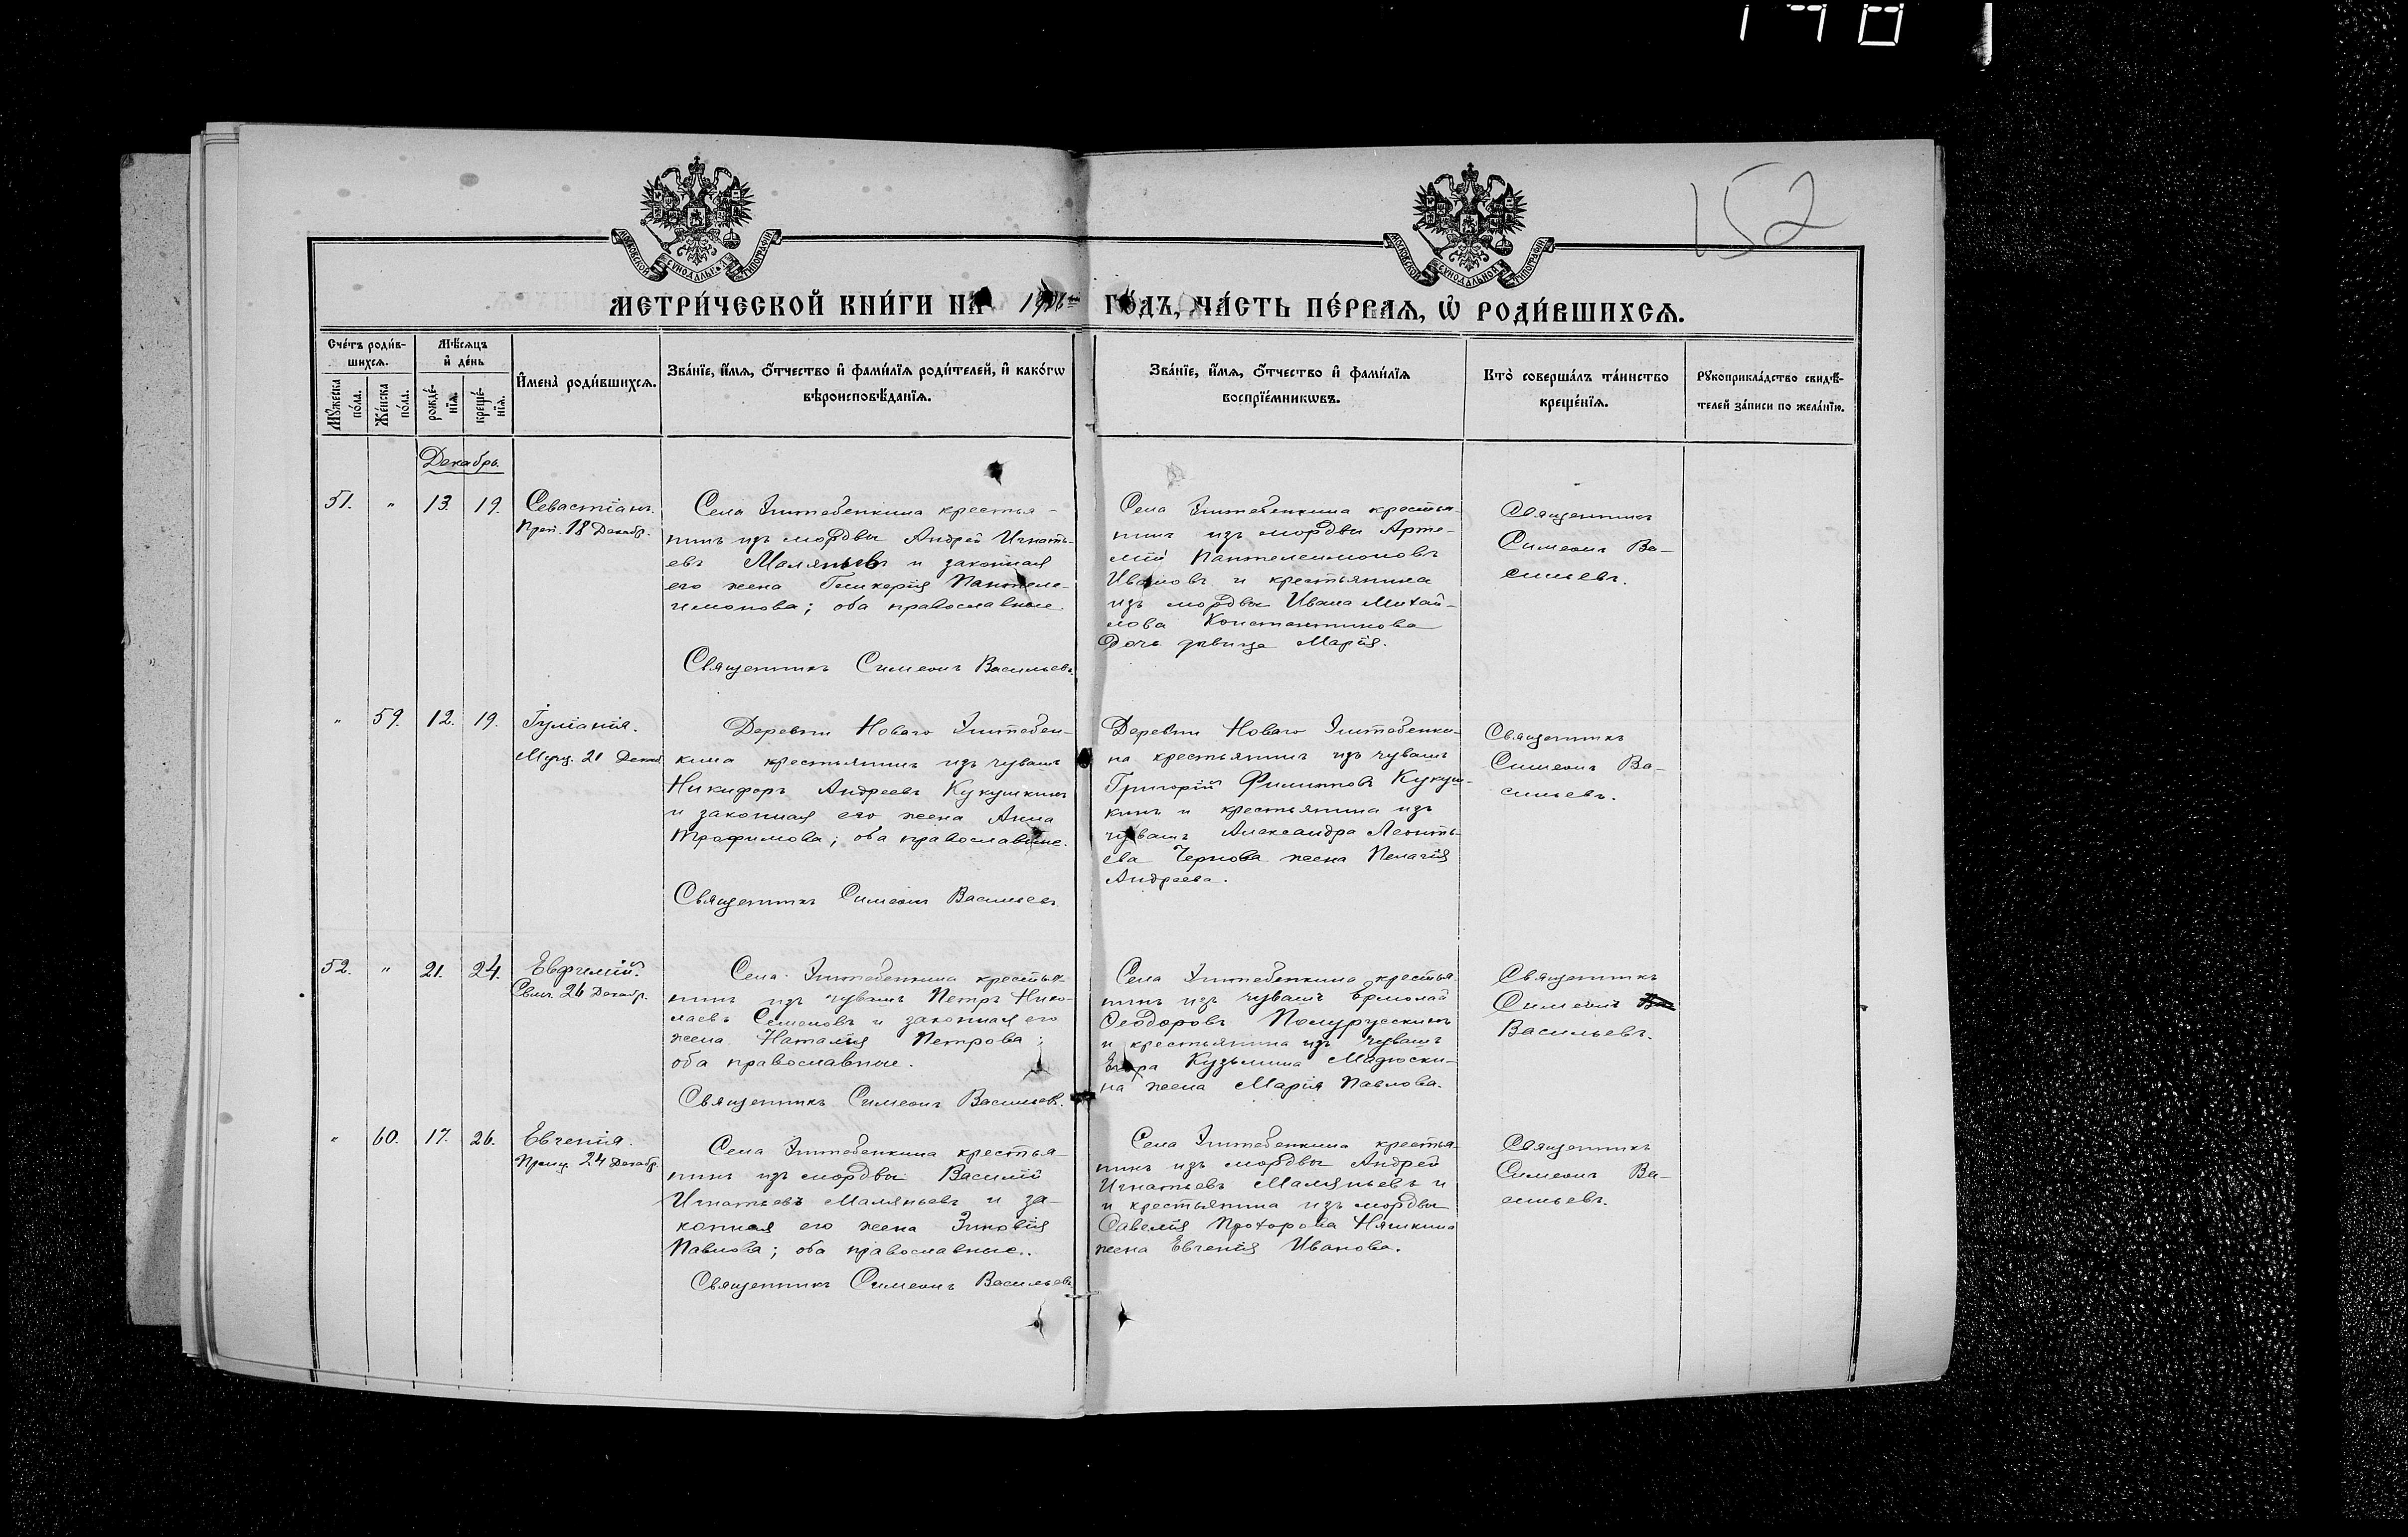 152
МОСКОВСКОЙ СѴНОДАЛЬНОЙ ТИПОГРАФІИ
МОСКОВСКОЙ СѴНОДАЛЬНОЙ ТИПОГРАФІИ
МЕТРИ́ЧЕСКОЙ КНИ́ГИ НА 1906 ГО́ДЪ, ЧА́СТЬ ПЕ́РВАѦ, Ѡ҆ РОДИ́ВШИХСѦ.
Счетъ роди́в-
шихсѧ.
Мѣ́сѧцъ
и҆ де́нь
Мꙋ́жеска
по́ла.
Же́нска
по́ла.
рожде́-
нїѧ.
креще́-
нїѧ.
И҆мена̀ роди́вшихсѧ.
Зва́нїе, и҆́мѧ, ѻ҆́тчество и҆ фами́лїѧ роди́телей, и҆ како́гѡ
вѣроисповѣ́данїѧ.
Зва́нїе, и҆́мѧ, ѻ҆́тчество и҆ фами́лїѧ
воспрїе́мникѡвъ.
Кто̀ соверша́лъ та́инство
креще́нїѧ.
Рꙋкоприкла́дство свидѣ́-
телей за́писи по жела́нїю.
Декабрь.
51. " 13. 19. Севастіанъ.
Преп. 18 Декабр.
Села Эштебенкина крестья-
нинъ изъ мордвы Андрей Игнать-
евъ Маляньевъ и законная
его жена Гликерія Пантеле-
имонова; оба православные
Священникъ Симеонъ Васильевъ
Села Эштебенкина крестья-
нинъ изъ мордвы Арте-
мій Пантелеимоновъ
Ивановъ и крестьянина
изъ мордвы Ивана Михай-
лова Константинова
дочь дѣвица Марія.
Священникъ
Симеонъ Ва-
сильевъ.
" 59. 12. 19. Іуліанія.
Муч. 21 Декаб.
Деревни Новаго Эштебен-
кина крестьянинъ изъ чувашъ
Никифоръ Андреевъ Кукушкинъ
и законная его жена Анна
Трофимова; оба православные.
Священникъ Симеонъ Васильевъ
Деревни Новаго Эштебенки-
на крестьянинъ изъ чувашъ
Григорій Филипповъ Кукуш-
кинъ и крестьянина изъ
чувашъ Александра Леонть-
ева Чернова жена Пелагія
Андреева.
Священникъ
Симеонъ Ва-
сильевъ.
52. " 21. 24. Евфимій.
Свмч. 26 Декабр.
Села Эштебенкина крестья-
нинъ изъ чувашъ Петръ Нико-
лаевъ Семеновъ и законная его
жена Наталія Петрова;
оба православные.
Священникъ Симеонъ Васильевъ.
Села Эштебенкина крестья-
нинъ изъ чувашъ Ермолай
Ѳеодоровъ Полурусскинъ
и крестьянина изъ чувашъ
Кузьмина
на жена Марія Павлова.
Священникъ
Симеонъ
Васильевъ.
" 60. 17. 26. Евгенія.
Прмц. 24 Декабр.
Села Эштебенкина крестья-
нинъ изъ мордвы Василій
Игнатьевъ Маляньевъ и за-
конная его жена Зиновія
Павлова; оба православные.
Священникъ Симеонъ Васильевъ
Села Эштебенкина крестья-
нинъ изъ мордвы Андрей
Игнатьевъ Маляньевъ и
и крестьянина изъ мордвы
Савелія Прохорова Няшкина
жена Евгенія Иванова.
Священникъ
Симеонъ Ва-
сильевъ.